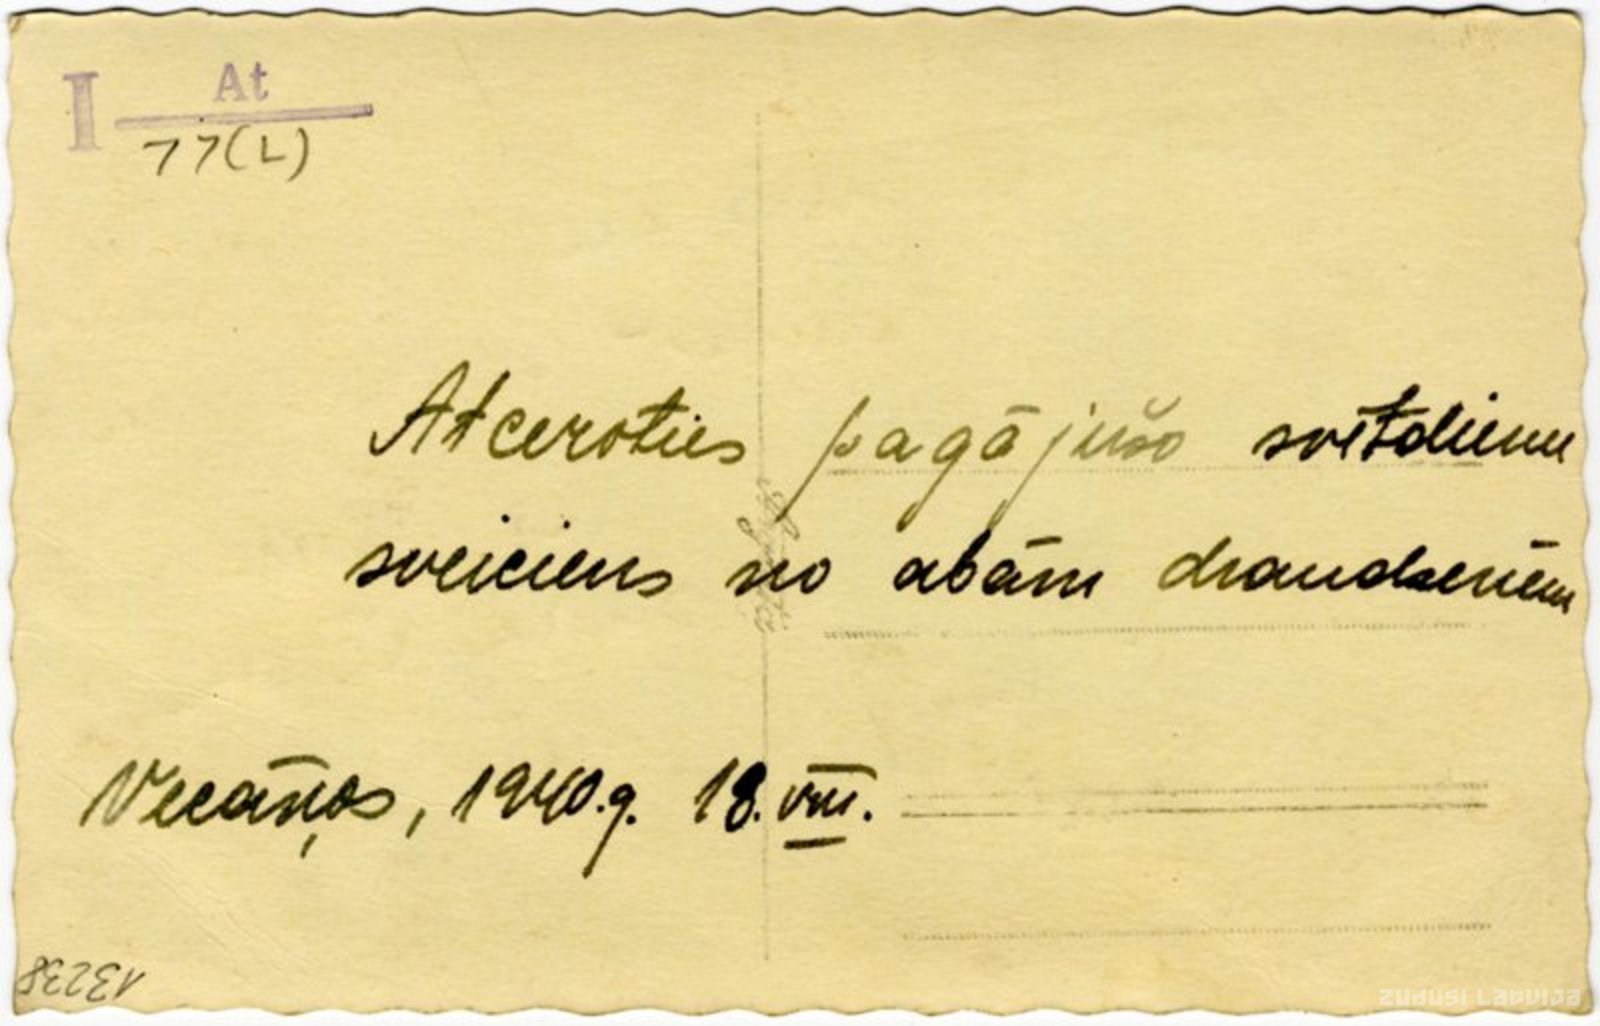 I At
77(L)
Atceroties pagājušo svētdienu
sveiciens no abām draudzenēm
Vecāņos, 1940.g. 18. VIII.
13238
ZUDUSI LATVIJA